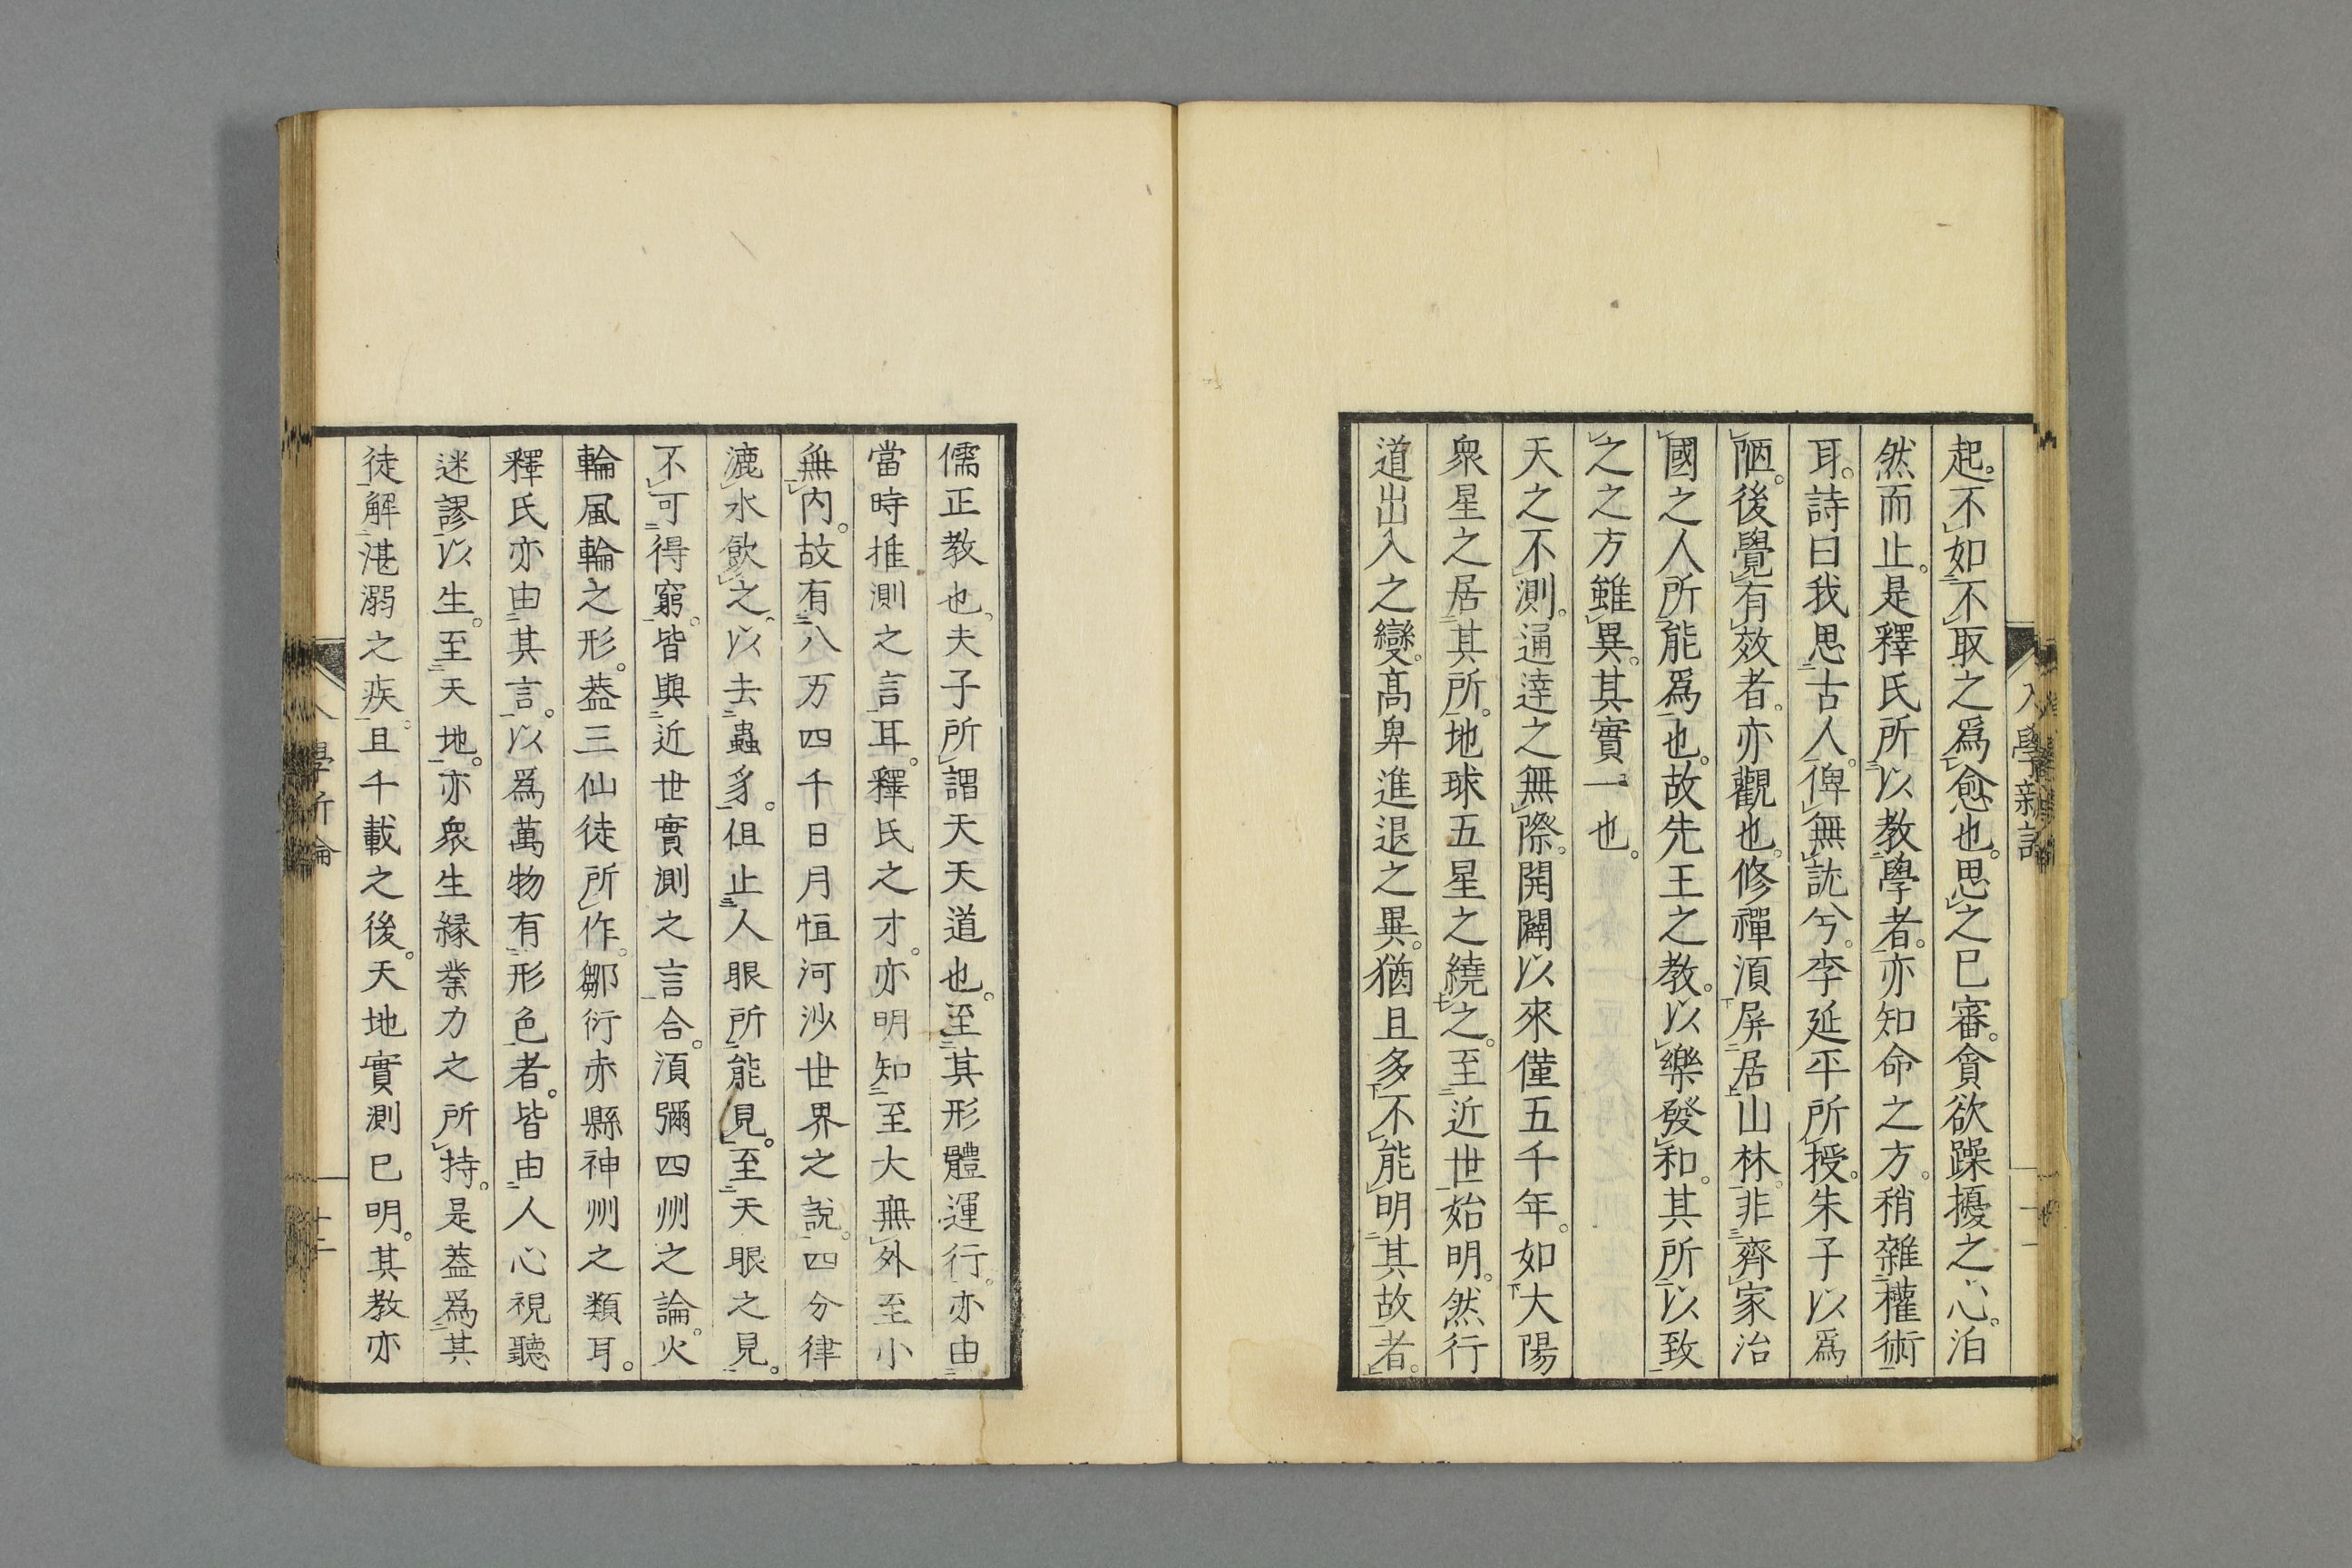 入學新論
起。不如不取之爲愈也。思之已審。貪欲躁擾之心。泊
然而止。是釋氏所以教學者。亦知命之方。稍雜權術
耳。詩曰我思古人。俾無訧兮。李延平所授。朱子以爲
陋。後覺有效者。亦觀也。修禪須屏居山林。非齊家治
國之人所能爲也。故先王之教。以樂發和。其所以致
之之方雖異。其實一也。
天之不測。通達之無際。開闢以來僅五千年。如大陽
衆星之居其所。地球五星之繞之。至近世始明。然行
道出入之變。高卑進退之異。猶且多不能明其故者。
儒正教也。夫子所謂天天道也。至其形體運行。亦由
當時推測之言耳。釋氏之才。亦明知至大無外至小
無内。故有八万四千日月恒河沙世界之說。四分律
漉水飮之。以去蟲豸。但止人眼所能見。至天眼之見。
不可得窮。皆與近世實測之言合。須彌四州之論。火
輪風輪之形。葢三仙徒所作。鄒衍赤縣神州之類耳。
釋氏亦由其言。以爲萬物有形色者。皆由人心視聽
迷謬以生。至天地。亦衆生縁業力之所持。是葢爲其
徒解湛溺之疾。且千載之後。天地實測已明。其教亦
入學新論
十二